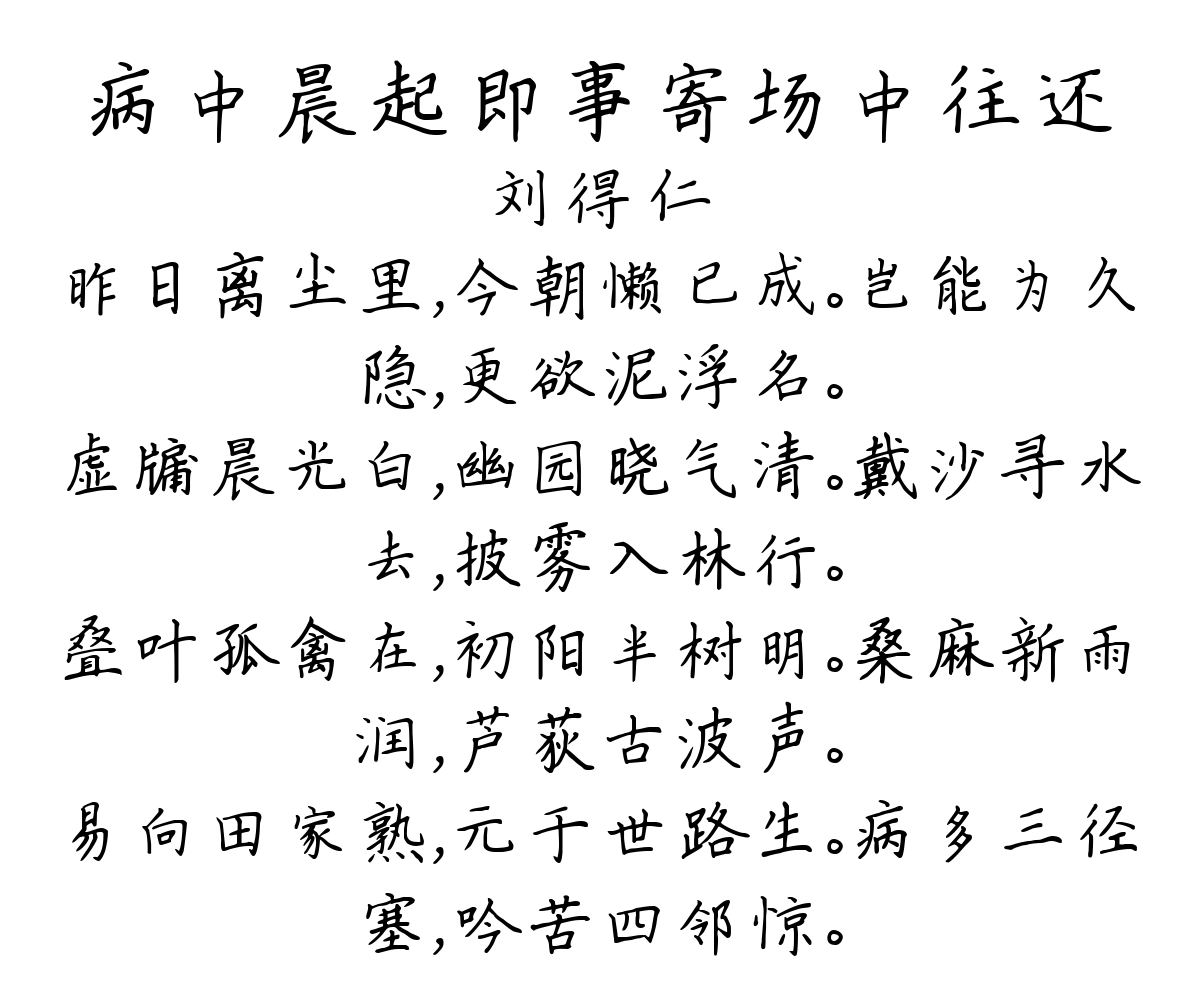 病中晨起即事寄场中往还
刘得仁
昨日离尘里,今朝懒已成。岂能为久
隐,更欲泥浮名。
虚牖晨光白,幽园晓气清。戴沙寻水
去,披雾入林行。
叠叶孤禽在,初阳半树明。桑麻新雨
润,芦荻古波声。
易向田家熟,元于世路生。病多三径
塞,吟苦四邻惊。